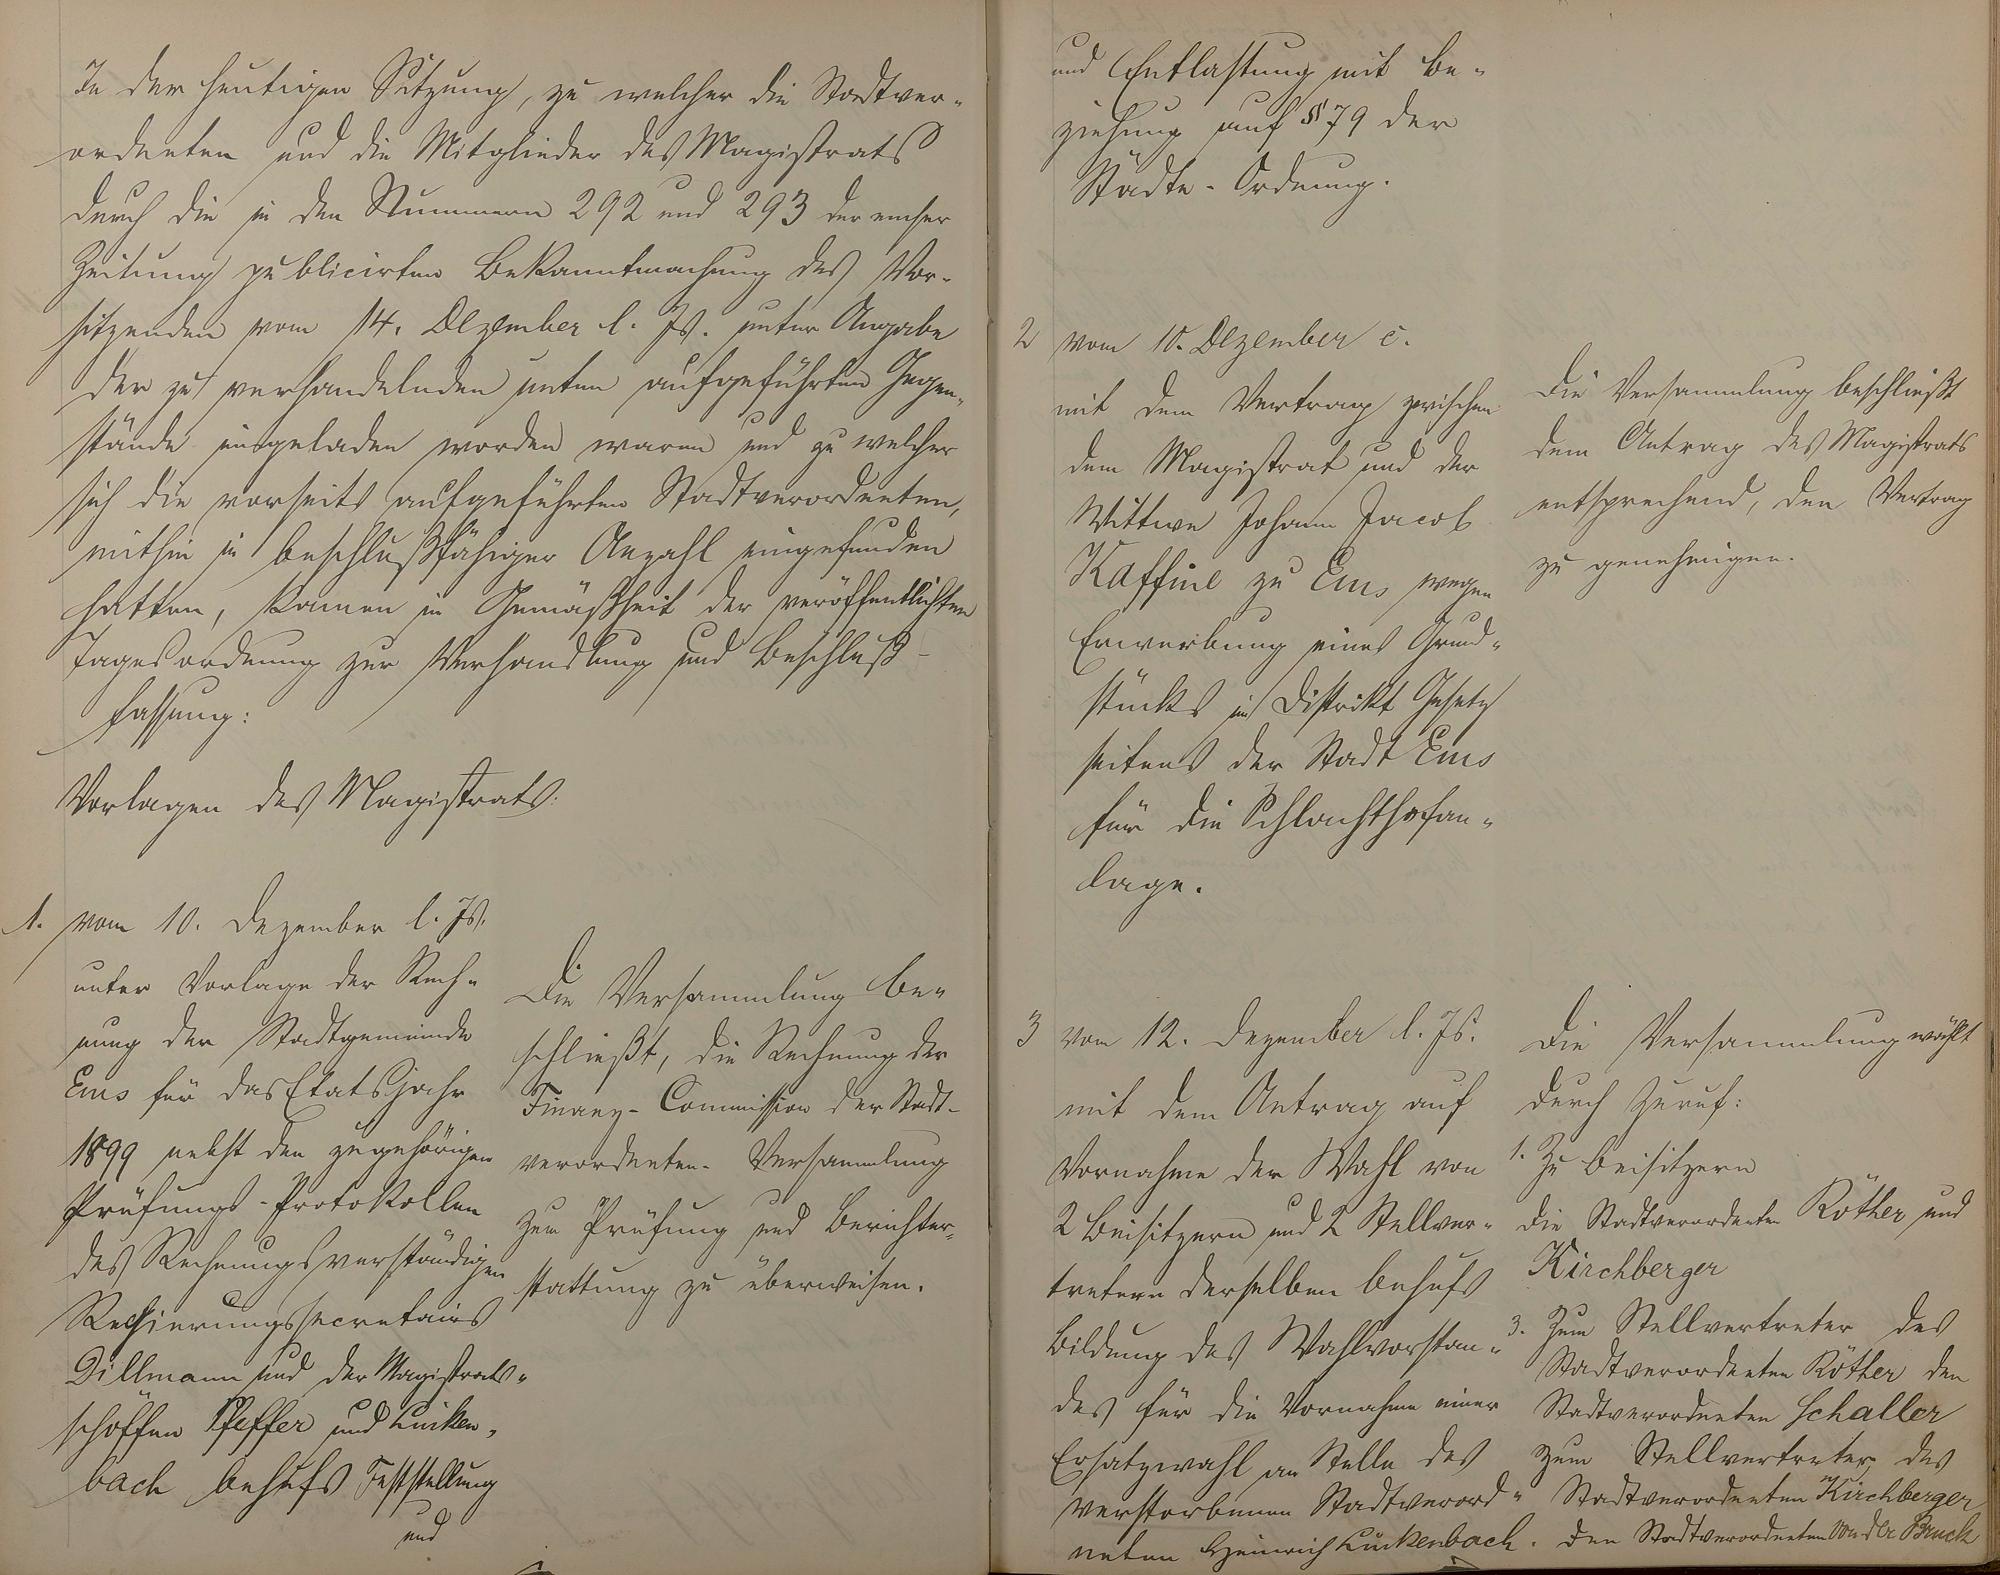 In der heutigen Sitzung, zu welcher die Stadtver-
ordneten und die Mitglieder des Magistrats
durch die in den Nummern 292 und 293 der emser
Zeitung publicirten Bekanntmachung des Vor-
sitzenden vom 14. Dezember l. Js. unter Angabe
der zu verhandelnden unten aufgeführten Gegen-
stände eingeladen worden waren und zu welcher
sich die vorseits aufgeführten Stadtverordneten,
mithin in beschlußfähiger Anzahl eingefunden
hatten, kamen in Gemäßheit der veröffentlichten
Tagesordnung zur Verhandlung und Beschluß-
fassung:
Vorlagen des Magistrats:
1. vom 10. Dezember l. Js.
unter Vorlage der Rech-
nung der Stadtgemeinde
Ems für das Etatsjahr
1899 nebst den zugehörigen
Prüfungs-Protokollen
des Rechnungsverständigen
Regierungssecretairs
Dillmann und der Magistrats-
schöffen Pfeffer und Linken-
bach behufs Feststellung
und
Die Versammlung be-
schließt, die Rechnung der
Finanz-Commission der Stadt-
verordneten-Versammlung
zur Prüfung und Berichter-
stattung zu überweisen.
und Entlastung mit Be-
ziehung auf § 79 der
Städte-Ordnung.
2 vom 10. Dezember c.
mit dem Vertrag zwischen
dem Magistrat und der
Wittwe Johann Jacob
Kaffine zu Ems wegen
Erwerbung eines Grund-
stücks im Distrikt Gesetz
seitens der Stadt Ems
für die Schlachthofan-
lage.
Die Versammlung beschließt
dem Antrag des Magistrats
entsprechend, den Vertrag
zu genehmigen.
3 vom 12. Dezember l. Js.
mit dem Antrag auf
Vornahme der Wahl von
2 Beisitzern und 2 Stellver-
tretern derselben behufs
Bildung des Wahlvorstan-
des für die Vornahme einer
Ersatzwahl an Stelle des
verstorbenen Stadtverord-
neten Heinrich Linkenbach.
Die Versammlung wählt
durch Zuruf:
1. Zu Beisitzern
die Stadtverordneten Röther und
Kirchberger
3. Zum Stellvertreter des
Stadtverordneten Röther den
Stadtverordneten Schaller
zum Stellvertreter des
Stadtverordneten Kirchberger
den Stadtverordneten von der Bruck